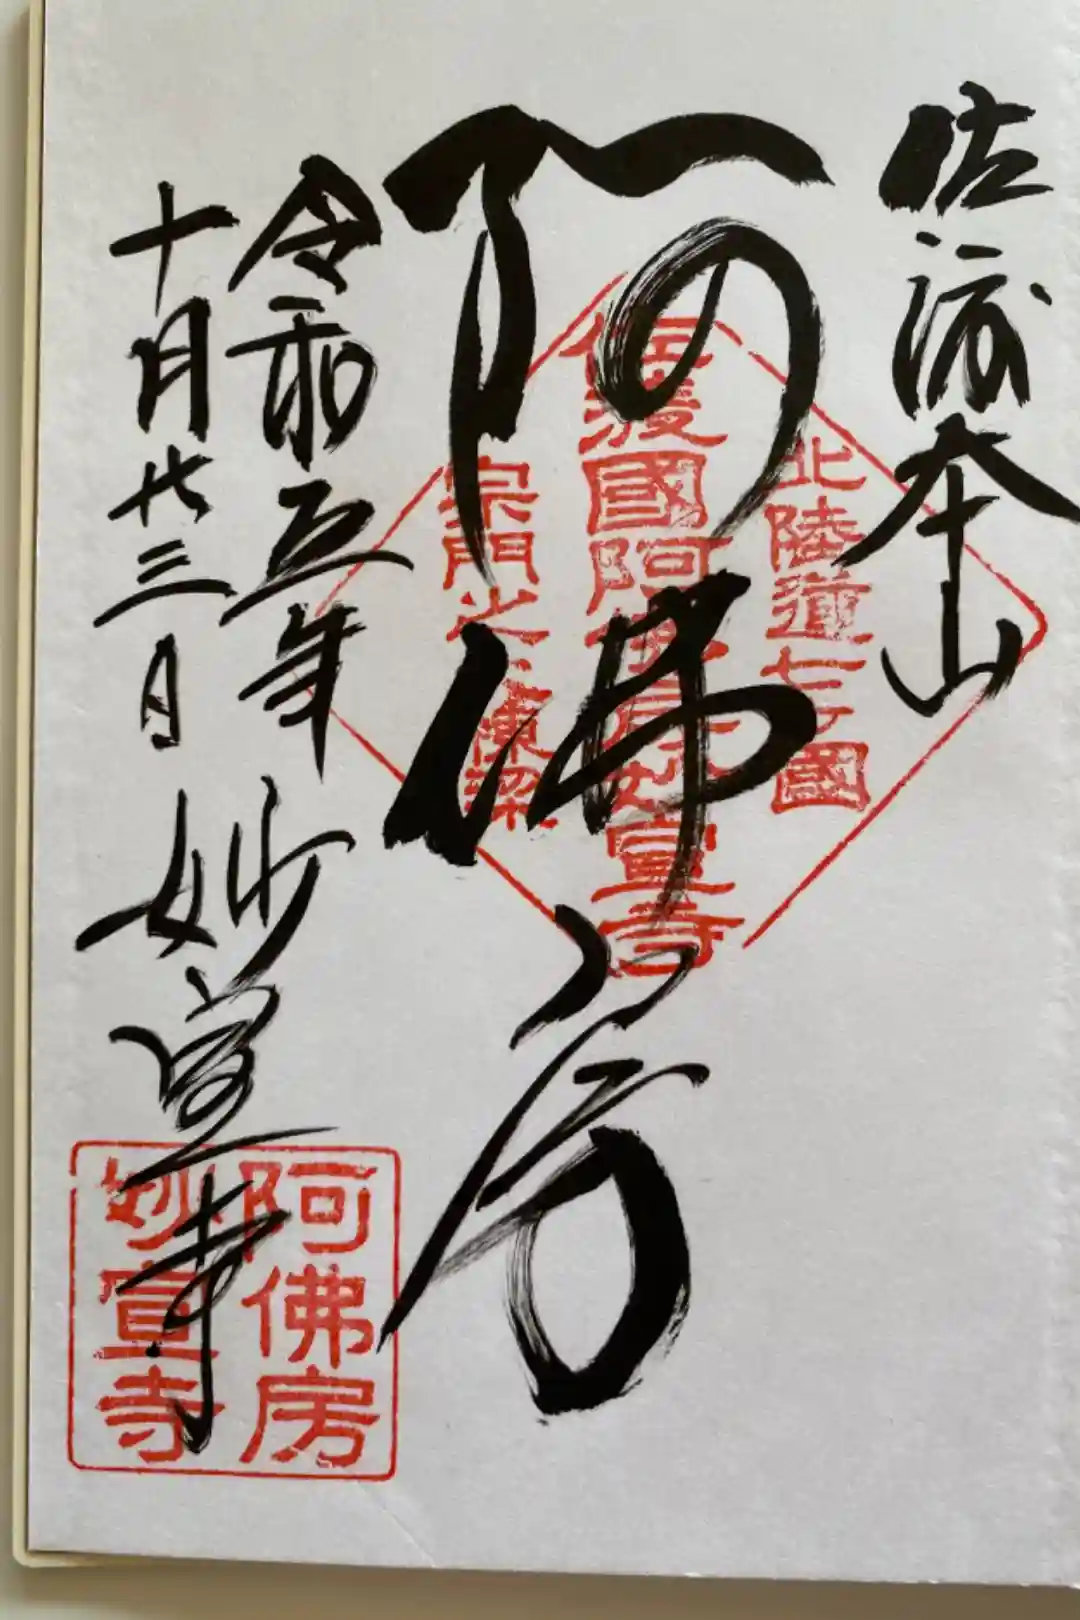 佐渡本山
阿佛房
令和五年
十月廿三日
妙宣寺
北陸道七ヶ國
佐渡國阿佛房妙宣寺
宗門之棟梁
阿佛房
妙宣寺